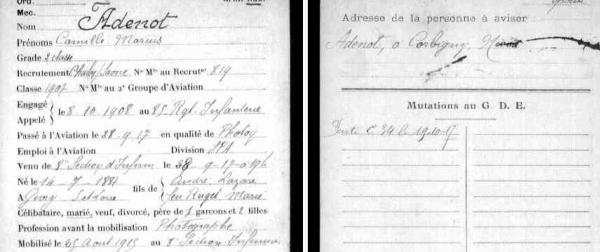 Ord.
Mec.
Nom Adenot
Prénoms Camille Marius
Grade 2 classe
Recrutement Chalon/Saone Nos Mle au Recrutnt 819
Classe 1907 No Mle au 2e Groupe d'Aviation
Engagé
Appelé
le 8.10.1908 au 85 Rgt. Infanterie
Passé à l'Aviation le 28.9.17 en qualité de Photog
Emploi à l'Aviation Division
Venu de 8e Section d'Infirm le 28 9-17
Né le 14-7-1887
à
fils de
André Lazare
feu Nugel Marie
Célibataire, marié, veuf, divorcé, père de 1 garçons et 2 filles
Profession avant la mobilisation Photographe
Mobilisé le 25 Aout 1915 au 8e Section
Adresse de la personne à aviser
Adenot, a Corbigny,
Mutations au G. D. E.
C. 34 le 19-10-17